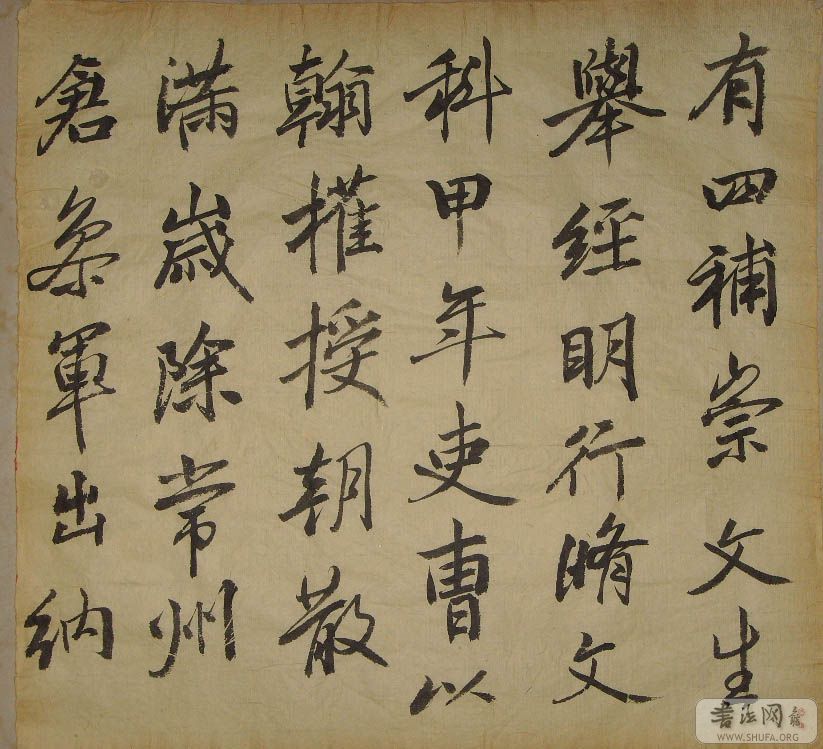 有四補崇文生
舉經明行脩文
科甲年吏曹以
翰擢授朝散
滿歲除常州
倉叅軍出納
書法网
WWW.SHUFA.ORG